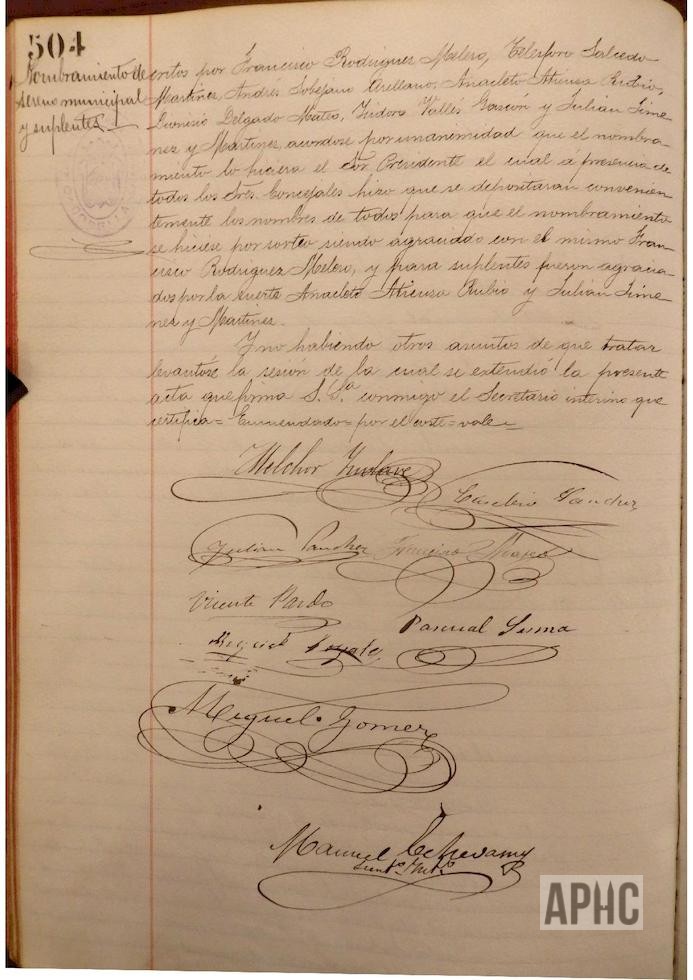 504
Nombramiento de
sereno municipal
y suplentes.
critos por Francisco Rodriguez Melero, Telesforo Salcedo
Martinez, Andrés Sobejano Arellano, Anacleto Atienza Rubio,
Dionisio Delgado Mateo, Isidoro Vallés Gascón y Julian Jime-
nez y Martinez, acordose por unanemidad que el nombra-
miento lo hiciera el Sor. Presidente el cual á presencia de
todos los Sres. Concejales hizo que se depositaran convenien-
temente los nombres de todos para que el nombramiento
se hiciese por sorteo siendo agraciado con el mismo Fran-
cisco Rodriguez Melero, y para suplentes fueron agracia-
dos por la suerte Anacleto Atienza Rubio y Julián Jime-
nez y Martinez.
Y no habiendo otros asuntos de que tratar
levantóse la sesion de la cual se extendió la presente
acta que firma S. Sª conmigo el Secretario interino que
certifica = Enmendado = por el corte = vale =
Melchor
Sanchez
Julian Sanchez Francisco
Vicente Pardo
Pascual Lerma
Miguel
Miguel Gomez
Manuel Echevarria
APHC